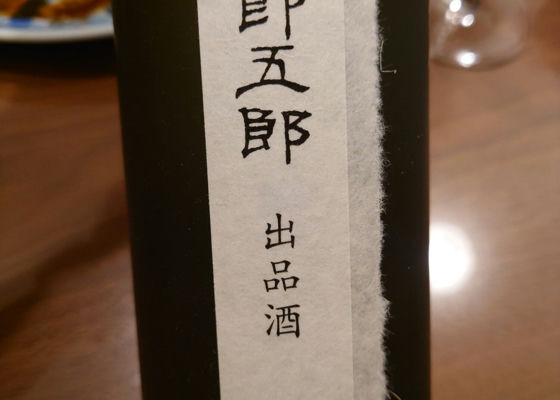 郎五郎
出品酒